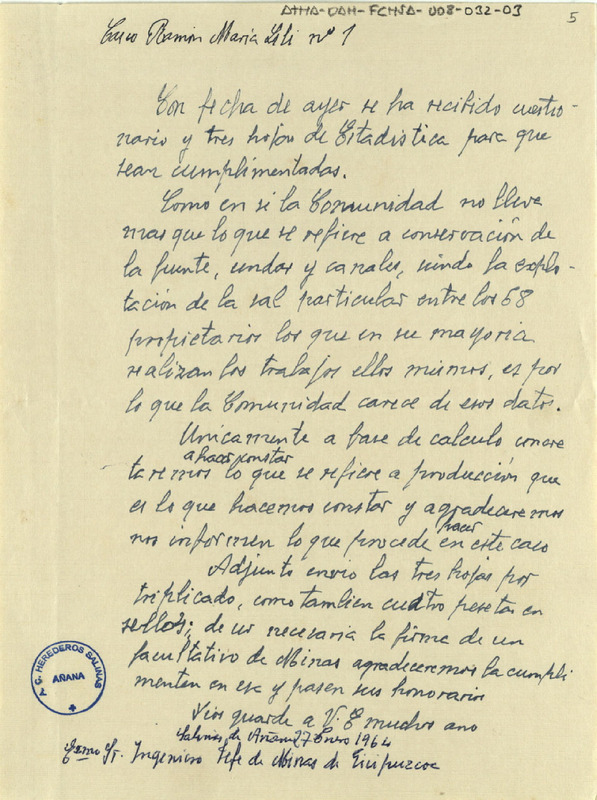 ATHA-DAH-FCHSA-008-032-03
5
Casco Ramon María Lili nº 1
Con fecha de ayer se ha recibido cuestio-
nario y tres hojas de Estadistica para que
sean cumplimentadas.
Como en si la Comunidad no lleva
mas que lo que se refiere a conservación de
la fuente, undas y canales, siendo la explo-
tación de la sal particular entre los 68
propietarios los que en su mayoria
realizan los trabajos ellos mismos, es por
lo que la Comunidad carece de esos datos.
Unicamente a base de calculo concre
a hacer constar
taremos lo que se refiere a producción que
es lo que hacemos constar y agradeceremos
hacer
nos informen lo que procede en este caso
Adjunto envio las tres hojas por
triplicado, como tambien cuatro pesetas en
sellos; de ser necesaria la firma de un
facultativo de Minas agradeceremos la cumpli
menten en esa y pasen sus honorarios
Dios guarde a V. E muchos ano
Salinas de Añana 27 Enero 1964
Excmo Sr. Ingeniero Jefe de Minas de Guipuzcoa
A. C. HEREDEROS SALINAS
AÑANA